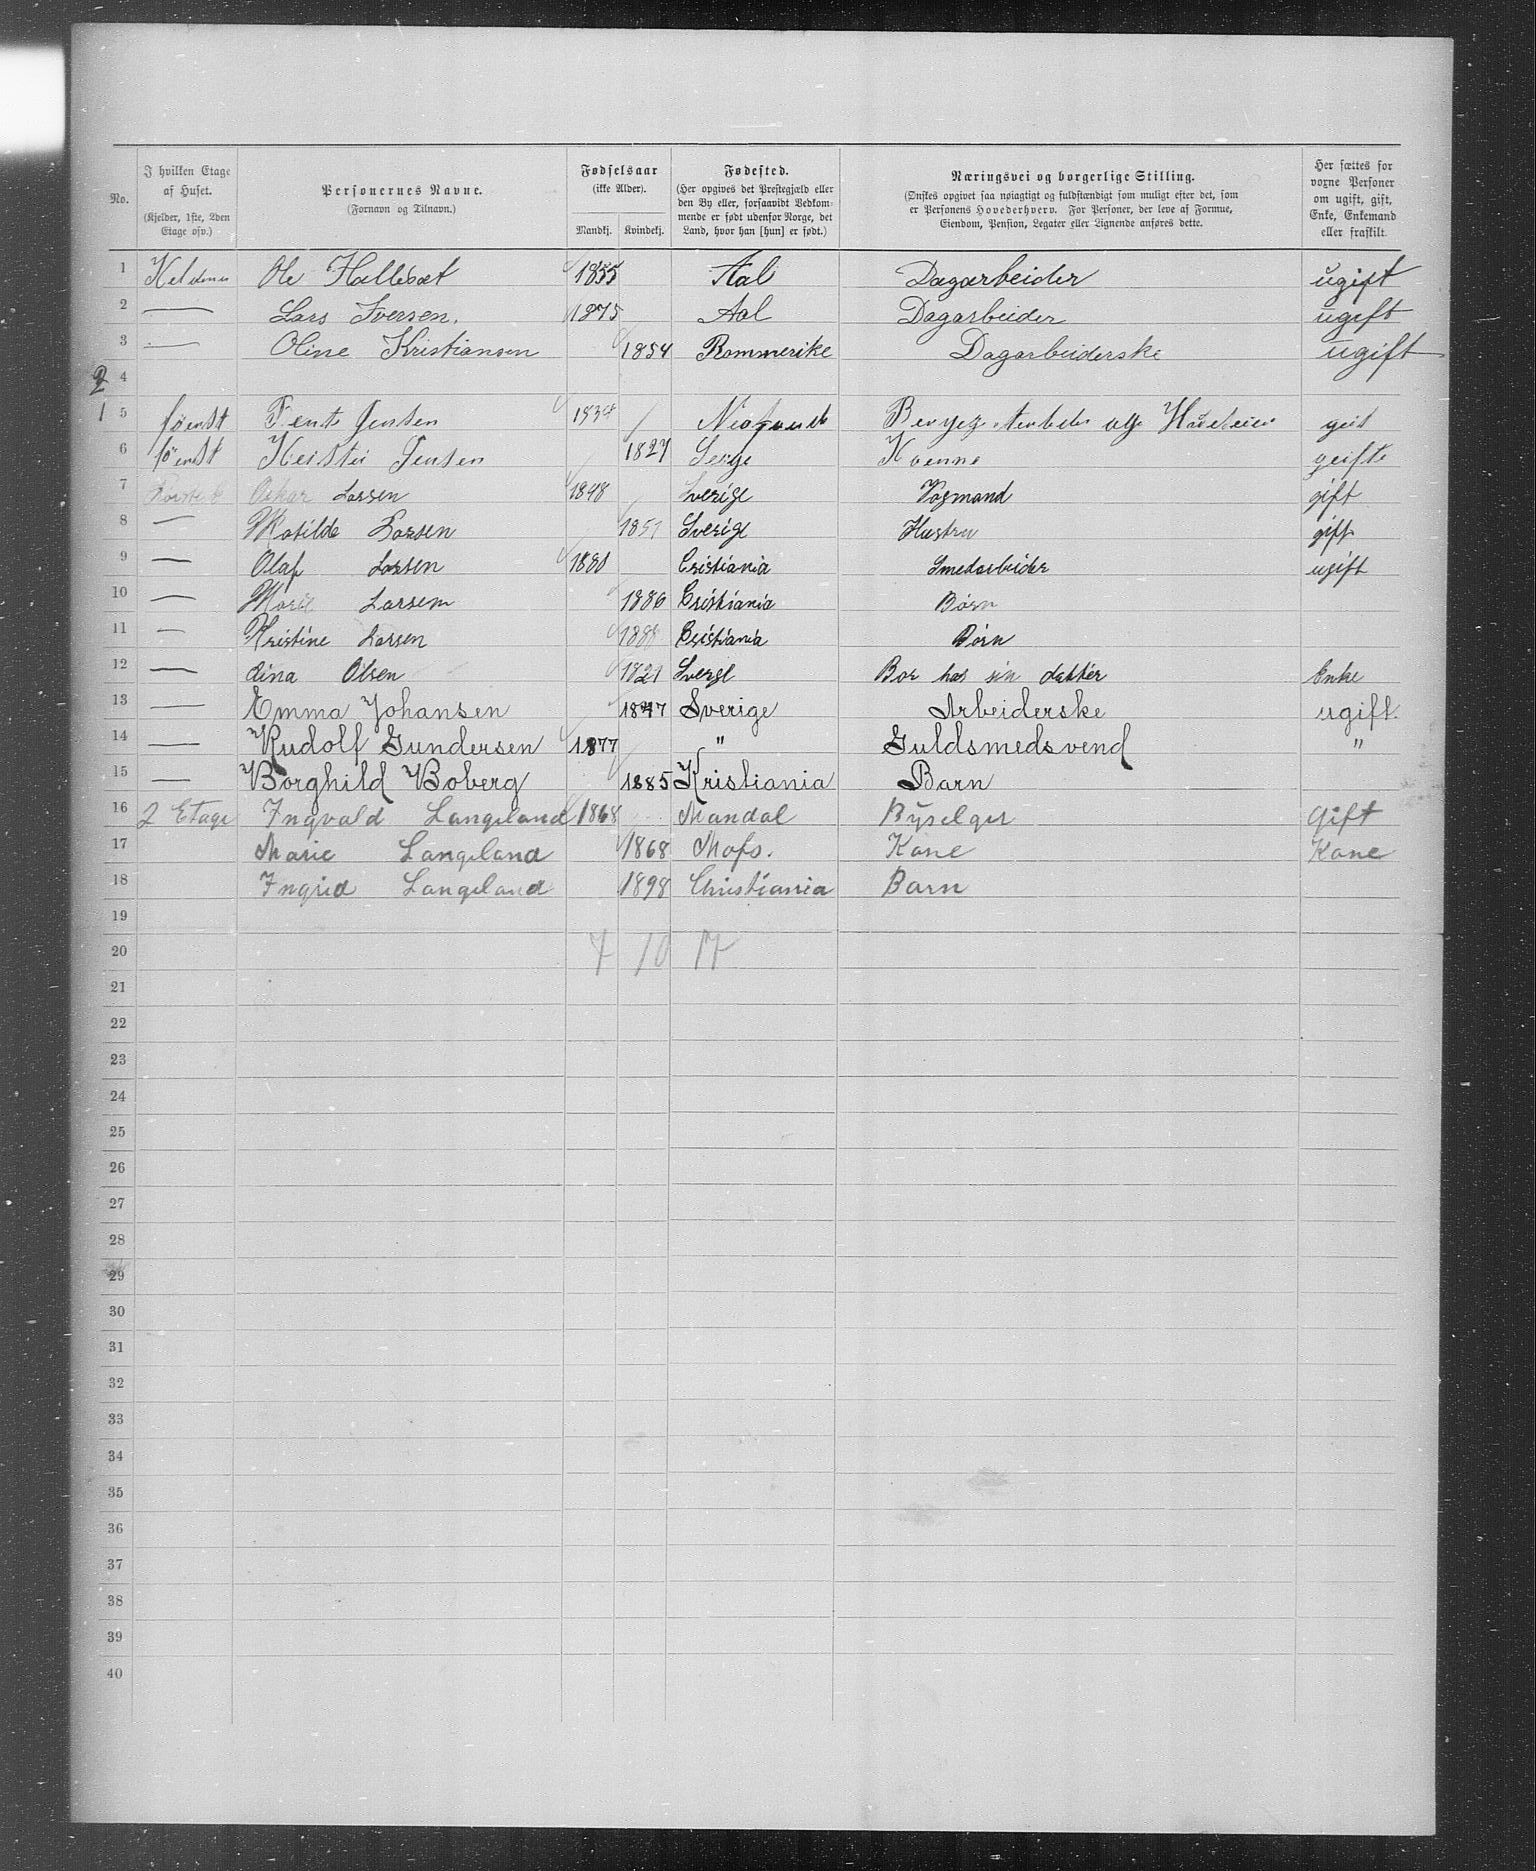 No.
I hvilken Etage af Huset. (Kjelder, 1ste, 2den Etage osv.)
Personernes Navne. (Fornavn og Tilnavn.)
Fødselsaar (ikke Alder). Mandkj. Kvindekj.
Fødested. (Her opgives det Prestegjæld eller den By eller, forsaavidt Vedkommende er født udenfor Norge, det Land, hvor han [hun] er født.)
Næringsvei og borgerlige Stilling. (Ønskes opgivet saa nøiagtigt og fuldstændigt som muligt efter det, som er Personens Hovederhverv. For Personer, der leve af Formue, Eiendom, Pension, Legater eller Lignende anføres dette.
Her sættes for voxne Personer om ugift, gift, Enke, Enkemand eller fraskilt.
1 Ole Hallesæt 1855 Aal Dagarbeider ugift
2 — Lars Iversen. 1875 Aal Dagarbeider ugift
3 — Oline Kristiansen 1854 Rommerike Dagarbeiderske ugift
2 4
1 5 føenst Jensen Arbeder
6 føenst Jensen 1827 Kvenne geifte
7 Oskar Larsen 1848 Sverige Vogmand gift
8 — Matilde Larsen 1851 Sverige Hustru gift
9 — Olaf Larsen 1880 Cristiania Smedarbeider ugift
10 — Marie Larsem 1886 Cristiania Børn
11 — Kristine Larsen 1888 Cristiania Børn
12 — Lina Olsen 1821 Sverge Bor hos sin datter Enke
13 — Emma Johansen 1847 Sverige Arbeiderske ugift.
14 — Rudolf Gundersen 1877 " Guldsmedsvend "
15 — Borghild Boberg 1885 Kristiania Barn
16 2 Etage Ingvald Langeland 1868 Mandal Byselger Gift
17 Marie Langeland 1868 Mofs. Kone Kone
18 Ingrid Langeland 1898 Christiania Barn
19
20 7 10 17
21
22
23
24
25
26
27
28
29
30
31
32
33
34
35
36
37
38
39
40